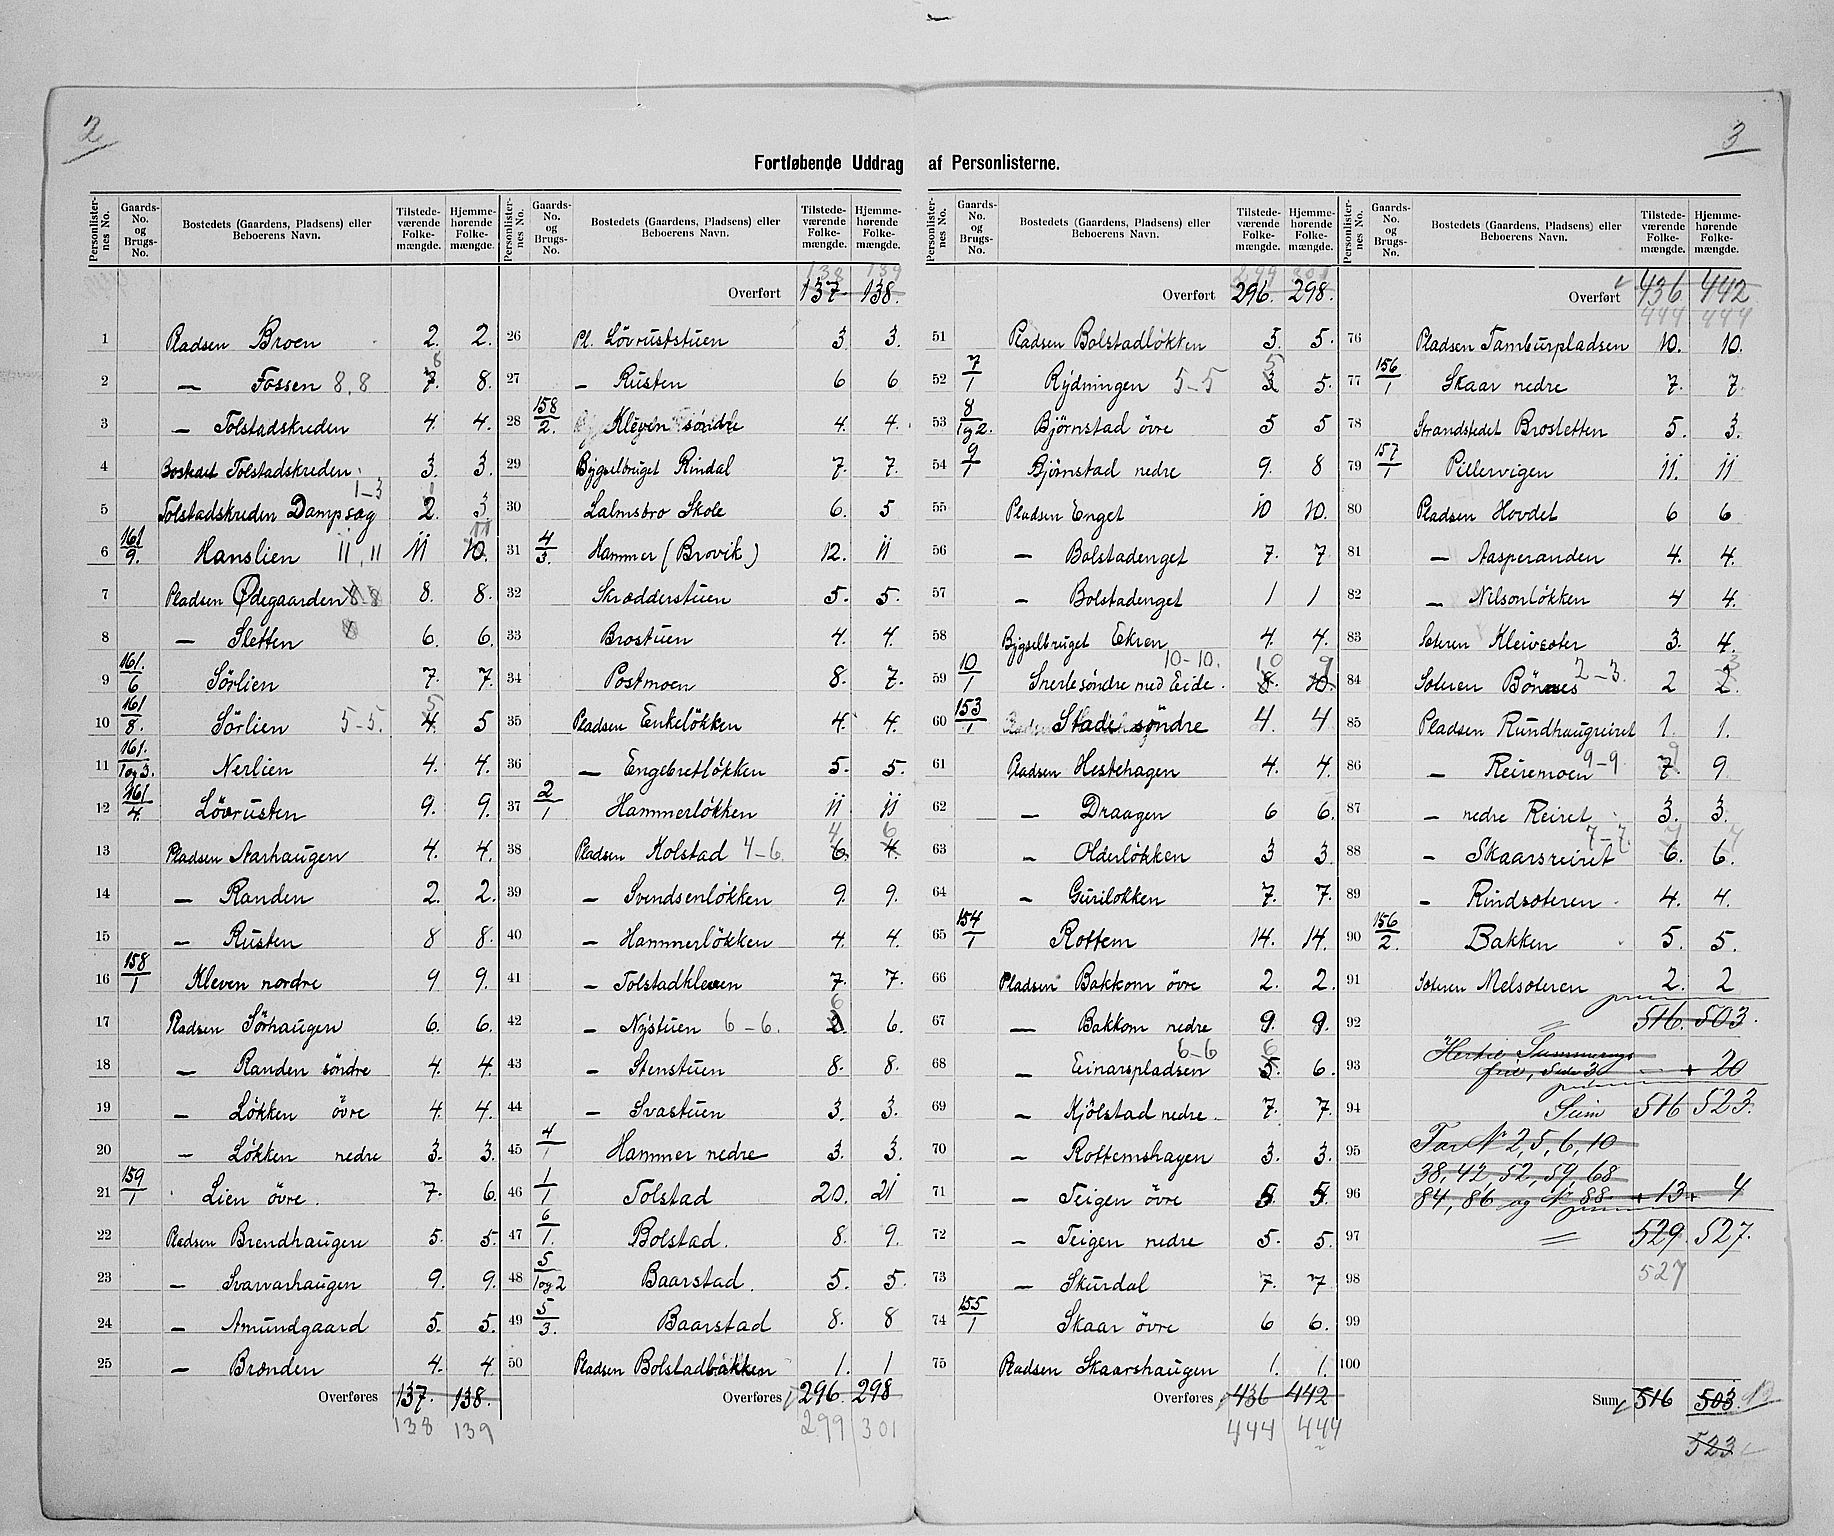 2
3
Fortløbende Uddrag af Personlisterne.
Personlister-nes No. Gaards-No. og Brugs-No. Bostedets (Gaardens, Pladsens) eller Beboerens Navn. Tilstede-værende Folke-mængde. Hjemme-hørende Folke-mængde.
1 Pladsen Broen 2. 2.
2 — Fossen 8,8 7. 8 8.
3 — Tolstadskreden 4. 4.
4 Bostedet Tolstadskreden 3. 3.
1-3
5 Tolstadskreden Dampsag 2. 3
6 161/9. Hanslien 11, 11 11 10. 11
7 Pladsen Ødegaarden 8 8 8. 8.
8 — Sletten 8 6. 6.
9 161./6 Sörlien 7. 7.
10 161/8. Sörlien 5-5. 4. 5 5
11 161./1og3. Nerlien 4. 4.
12 161/4. Lövrusten 9. 9.
13 Pladsen Aarhaugen 4. 4.
14 — Randen 2. 2.
15 — Rusten 8 8.
16 158/1 Kleven nordre 9 9.
17 Pladsen Sörhaugen 6. 6.
18 — Randen söndre 4. 4.
19 — Lökken övre 4. 4.
20 — Lökken nedre 3. 3.
21 159/1 Lien övre. 7. 6.
22 Pladsen Brendhaugen 5. 5.
23 — Svarvarhaugen 9. 9.
24 — Amundgaard 5. 5.
25 — Brenden 4. 4
Overføres 137. 138.
138 139
Personlister-nes No. Gaards-No. og Brugs-No. Bostedets (Gaardens, Pladsens) eller Beboerens Navn. Tilstede-værende Folke-mængde. Hjemme-hørende Folke-mængde.
138 139
Overført 137. 138.
26 Pl. Lövruststuen 3. 3.
27 — Rusten 6 6
28 158/2. Kleven söndre 4. 4.
29 Bygselbruget Rindal 7. 7.
30 Lalmsbro Skole 6. 5
31 4/3. Hammer (Brovik) 12. 11
32 Skrædderstuen 5. 5.
33 Brostuen 4. 4.
34 Postmoen 8. 7.
35 Pladsen Enkelökken 4. 4.
36 — Engebretlökken 5. 5.
37 2/1 Hammerlökken 11 11
38 Pladsen Kolstad 4-6 6. 4 4. 6
39 — Svendsenlökken 9. 9.
40 — Hammerlökken 4. 4.
41 — Tolstadkleven 7. 7.
42 — Nystuen 6-6. 6 6.
43 — Stenstuen 8. 8.
44 — Svastuen 3. 3.
45 4/1 Hammer nedre 3. 3.
46 1/1 Tolstad 20. 21
47 6/1. Bolstad. 8. 9.
48 5/1og2 Baarstad. 5. 5.
49 5/3. Baarstad 8. 8
50 Pladsen Bolstadbakken 1. 1
Overføres 296. 298
299 301
Personlister-nes No. Gaards-No. og Brugs-No. Bostedets (Gaardens, Pladsens) eller Beboerens Navn. Tilstede-værende Folke-mængde. Hjemme-hørende Folke-mængde.
299 301
Overført 296. 298.
51 Pladsen Bolstadlökken 5. 5.
52 7/1 Rydningen 5-5 3 5 5.
53 8/1og2. Bjørnstad övre 5 5
54 9/1 Bjørnstad nedre 9. 8
55 Pladsen Enget 10 10.
56 — Bolstadenget 7. 7
57 — Bolstadenget 1 1
58 Bygselbruget Ekren 4. 4.
10-10.
59 10/1 Snerlesöndre med Eide. 8. 10 10. 9
60 153/1 Stade söndre 4 4
61 Pladsen Hestehagen 4. 4.
62 — Draagen 6 6.
63 — Olderlökken 3 3.
64 — Gurilokken 7. 7.
65 154/1 Rottem 14. 14.
66 Pladsen Bakkom övre 2. 2.
67 — Bakkom nedre 9. 9.
6-6
68 — Einarspladsen 5. 6 6.
69 — Kjölstad nedre. 7. 7.
70 — Rottemshagen 3. 3.
71 — Teigen övre 5. 5.
72 — Teigen nedre 5. 5.
73 — Skurdal 7. 7.
74 155/1 Skaar övre 6 6.
75 Pladsen Skaarshaugen 1. 1.
Overføres 436 442
444 444
Personlister-nes No. Gaards-No. og Brugs-No. Bostedets (Gaardens, Pladsens) eller Beboerens Navn. Tilstede-værende Folke-mængde. Hjemme-hørende Folke-mængde.
Overført 436 442
444 444
76 Pladsen Tamburpladsen 10. 10.
77 156/1 Skaar nedre 7. 7.
78 Strandstedet Brosletten 5. 3.
79 157/1 Pillervigen 11. 11
80 Pladsen Hovdet 6 6
81 — Aasperanden 4. 4.
82 — Nilsonlökken 4 4.
83 Sæteren Kleivsæter 3. 4.
84 Sæteren Bönæs 2-3. 2 2. 3
85 Pladsen Rundhaugreiret 1. 1.
86 — Reiremoen 9-9 7. 9 9
87 — nedre Reiret 3. 3.
88 — Skaarsreiret 7-7. 6. 7 6. 7
89 — Rindsæteren 4. 4.
90 156/2. Bakken 5. 5.
91 Sæteren Melsæteren 2. 2
92 516. 503.
93 + 20
94 Sum 516 523.
95 For No 2, 5, 6, 10
38, 42, 52, 59, 68
96 84, 86 og No 88 + 13 + 4
97 529. 527.
98 527
99
100
Sum 516 503.
523